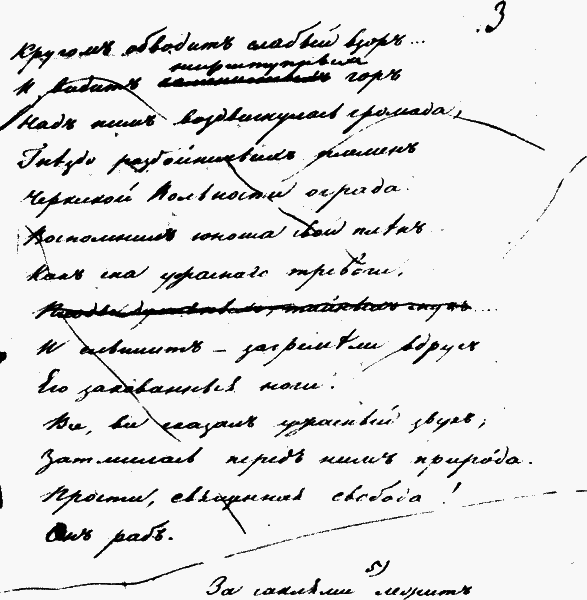 3
Кругомъ обводитъ слабый взоръ...
неприступныхъ
И видитъ горъ
Надъ нимъ воздвигнулась громада,
Гнѣздо разбойничьихъ племенъ
Черкеской вольности ограда.
Воспомнилъ юноша свой плѣнъ
Какъ сна ужаснаго тревоги,
И слышитъ – загремѣли вдругъ
Его закованныя ноги.
Все, все сказалъ ужасный звукъ;
Затмилась передъ нимъ природа.
Прости, священная свобода!
Онъ рабъ.
5)
За саклями лежитъ